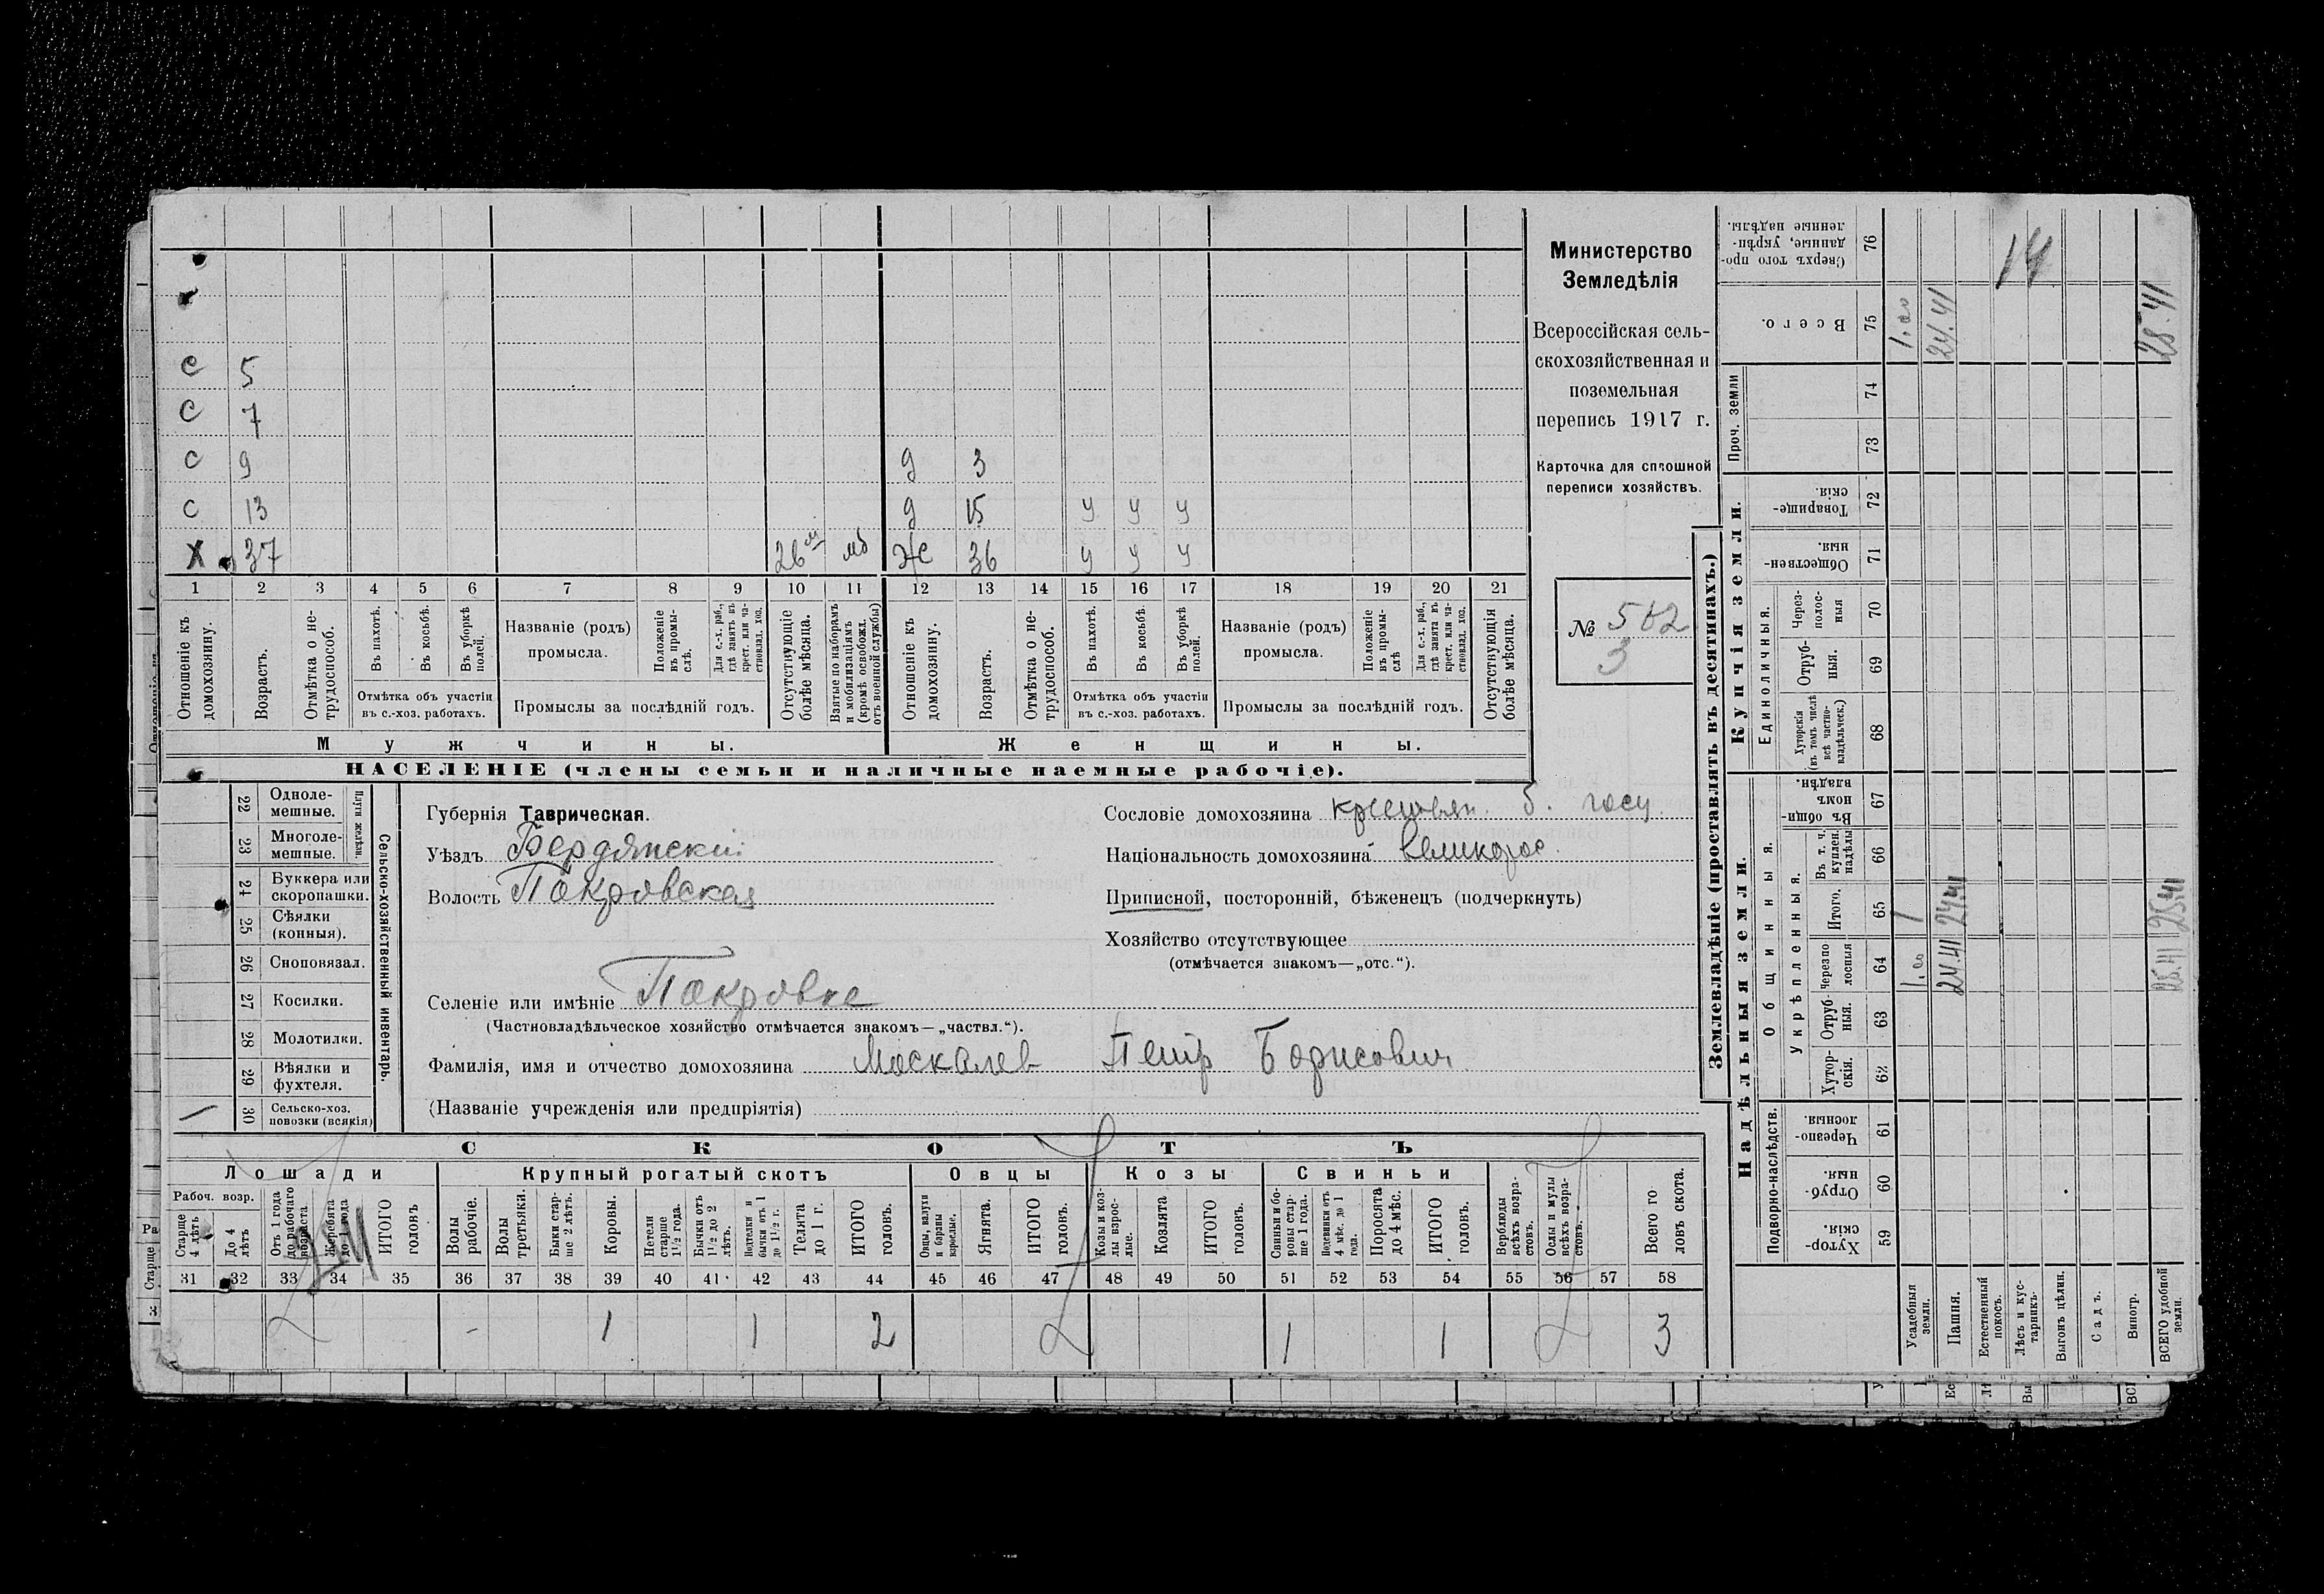 С 5
С 7
С 9 д 3
С 13 д 15 у у у
Х 37 26 м мб Же 36 у у у
1 2 3 4 5 6 7 8 9 10 11 12 13 14 15 16 17 18 19 20 21
Отношеніе къ домохозяину.
Возрастъ.
Отмѣтка о нетрудоспособ.
Въ пахотѣ.
Въ косьбѣ.
Въ уборкѣ полей.
Отмѣтка объ участіи въ с.-хоз. работахъ.
Названіе (родъ) промысла.
Положеніе въ промыслѣ.
Для с.-х. раб., гдѣ занятъ въ крест. или частновлад. хоз.
Промыслы за послѣдній годъ.
Отсутствующіе болѣе мѣсяца.
Взятые по наборамъ и мобилизаціямъ (кромѣ освобожд. отъ военной службы)
Отношеніе къ домохозяину.
Возрастъ.
Отмѣтка о нетрудоспособ.
Въ пахотѣ.
Въ косьбѣ.
Въ уборкѣ полей.
Отмѣтка объ участіи въ с.-хоз. работахъ.
Названіе (родъ) промысла.
Положеніе въ промыслѣ
Для с.-х. раб., гдѣ занята въ крест. или частновлад. хоз.
Промыслы за послѣдній годъ.
Отсутствующія болѣе мѣсяца.
Мужчины. Женщины.
НАСЕЛЕНІЕ (члены семьи и наличные наемные рабочіе).
Министерство
Земледѣлія
Всероссійская сель-
скохозяйственная и
поземельная
перепись 1917 г.
Карточка для сплошной
переписи хозяйствъ.
№ 502
3
Сельско-хозяйственный инвентарь.
Плуги желѣзн.
22 Одноле-
мешные.
23 Многоле-
мешные.
24 Буккера или
скоропашки.
25 Сѣялки
(конныя).
26 Сноповязал.
27 Косилки.
28 Молотилки.
29 Вѣялки и
фухтеля.
30 Сельско-хоз.
повозки (всякія)
Губернія Таврическая.
Уѣздъ Бердянскій
Волость Покровская
Селеніе или имѣніе Покровка
(Частновладѣльческое хозяйство отмѣчается знакомъ—„частвл.“).
Фамилія, имя и отчество домохозяина Москалев Петр Борисович
(Названіе учрежденія или предпріятія)
Сословіе домохозяина крестьян. б. госу.
Національность домохозяина великорос.
Приписной, посторонній, бѣженец (подчеркнуть)
Хозяйство отсутствующее
(отмѣчается знакомъ—„отс.“).
СКОТЪ
Лошади Крупный рогатый скотъ Овцы Козы Свиньи
Рабоч. возр.
Старше 4 лѣтъ
До 4 лѣтъ
Отъ 1 года до рабочаго возраста
Жеребята до 1 года
ИТОГО головъ
Волы рабочіе.
Волы третьяки.
Быки старше 2 лѣтъ.
Коровы.
Нетели старше 1½ года.
Бычки отъ 1½ до 2 лѣтъ.
Подтелки и бычки отъ 1 до 1½ г.
Телята до 1 г.
ИТОГО головъ.
Овцы, валухи и бараны взрослые.
Ягнята.
ИТОГО головъ.
Козы и козлы взрослые.
Козлята
ИТОГО головъ.
Свиньи и боровы старше 1 года.
Подсвинки отъ 4 мѣс. до 1 года.
Поросята до 4 мѣс.
ИТОГО головъ.
Верблюды всѣхъ возрастовъ.
Ослы и мулы всѣхъ возрастовъ.
Всего головъ скота.
31 32 33 34 35 36 37 38 39 40 41 42 43 44 45 46 47 48 49 50 51 52 53 54 55 56 57 58
- 1 1 2 1 1 3
Землевладѣніе (проставлять въ десятинахъ.)
Надѣльныя земли. Купчія земли.
Подворно-наслѣдств.
Общинныя.
Укрѣпленныя.
Единоличныя.
Проч. земли
Хуторскія. 59
Отрубныя. 60
Черезполосныя. 61
Хуторскія. 62
Отрубныя. 63
Черезполосныя 64
Итого. 65
Въ т. ч. куплен. надѣлы 66
Въ общинномъ владѣн. 67
Хуторскія (въ томъ числѣ всѣ частновладѣльческ.) 68
Отрубныя. 69
Черезполосныя 70
Общественныя. 71
Товарищескія. 72
73
74
Всего. 75
Сверхъ того проданные, укрѣпленные надѣлы. 76
Усадебныя земли. 1.00 1 1.00
Пашня. 24.41 24.41 24.41
Естественный покосъ.
Лѣсъ и кустарникъ.
Выгонъ цѣлин.
Садъ.
Виногр.
ВСЕГО удобной земли. 25.41 25.41 25.41
14